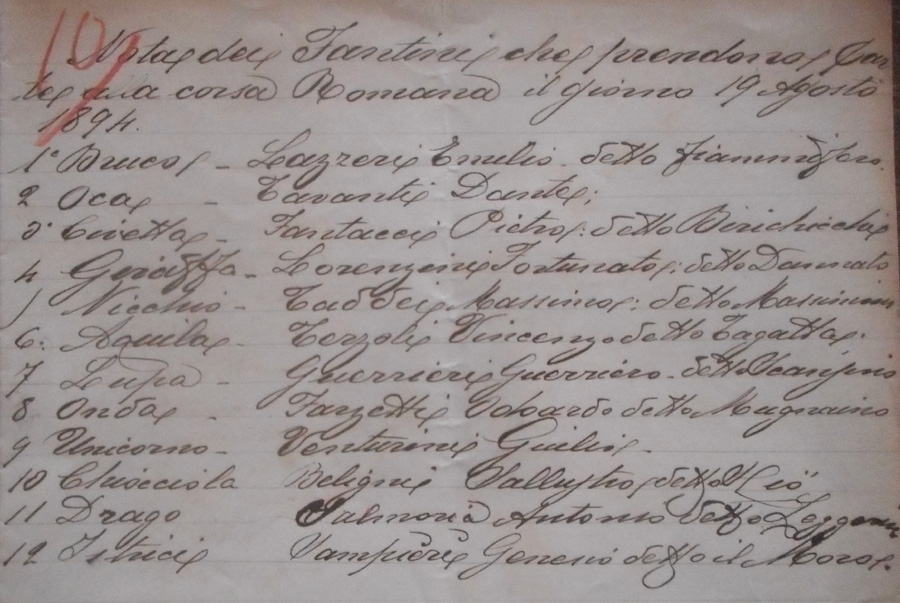 10
Nota dei Fantini che prendono par
te alla corsa Romana il giorno 19 Agosto
1894.
1° Bruco - Lazzeri Emilio - detto fiammifero
2 Oca - Tavanti Dante;
3° Civetta - Fantacci Pietro: detto Birichicchia
4 Giraffa - Lorenzini Fortunato: detto Dannato
5 Nicchio - Taddei Massimo: detto
6: Aquila - Terzoli Vincenzo detto Tagatta.
7 Lupa - Guerrieri Guerriero - detto
8 Onda - Farzetti Odoardo detto Mugnaino
9 Unicorno - Venturini Giulio.
10 Chiocciola Beligni Sallustio detto
11 Drago Salmoria Antonio detto
12 Istrici Vampieri Genesio detto il Moro.